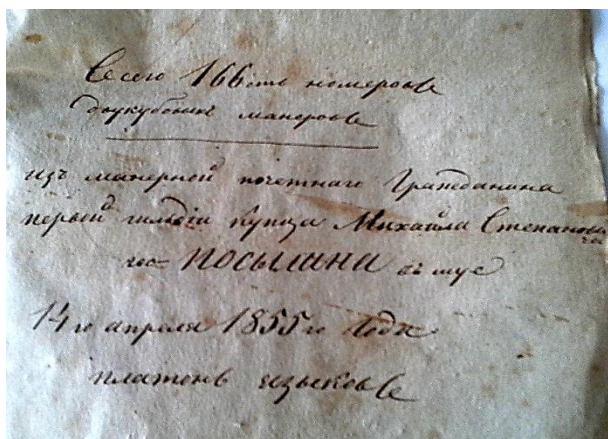 Всего 166ть номеровъ
двукубныхъ манеровъ
изъ манерной почетнаго Гражданина
первой гильдіи купца Михайла Степанови
ча
го= ПОСЫЛИНА въ шуе
14го апреля 1855го Года
платонъ языковъ